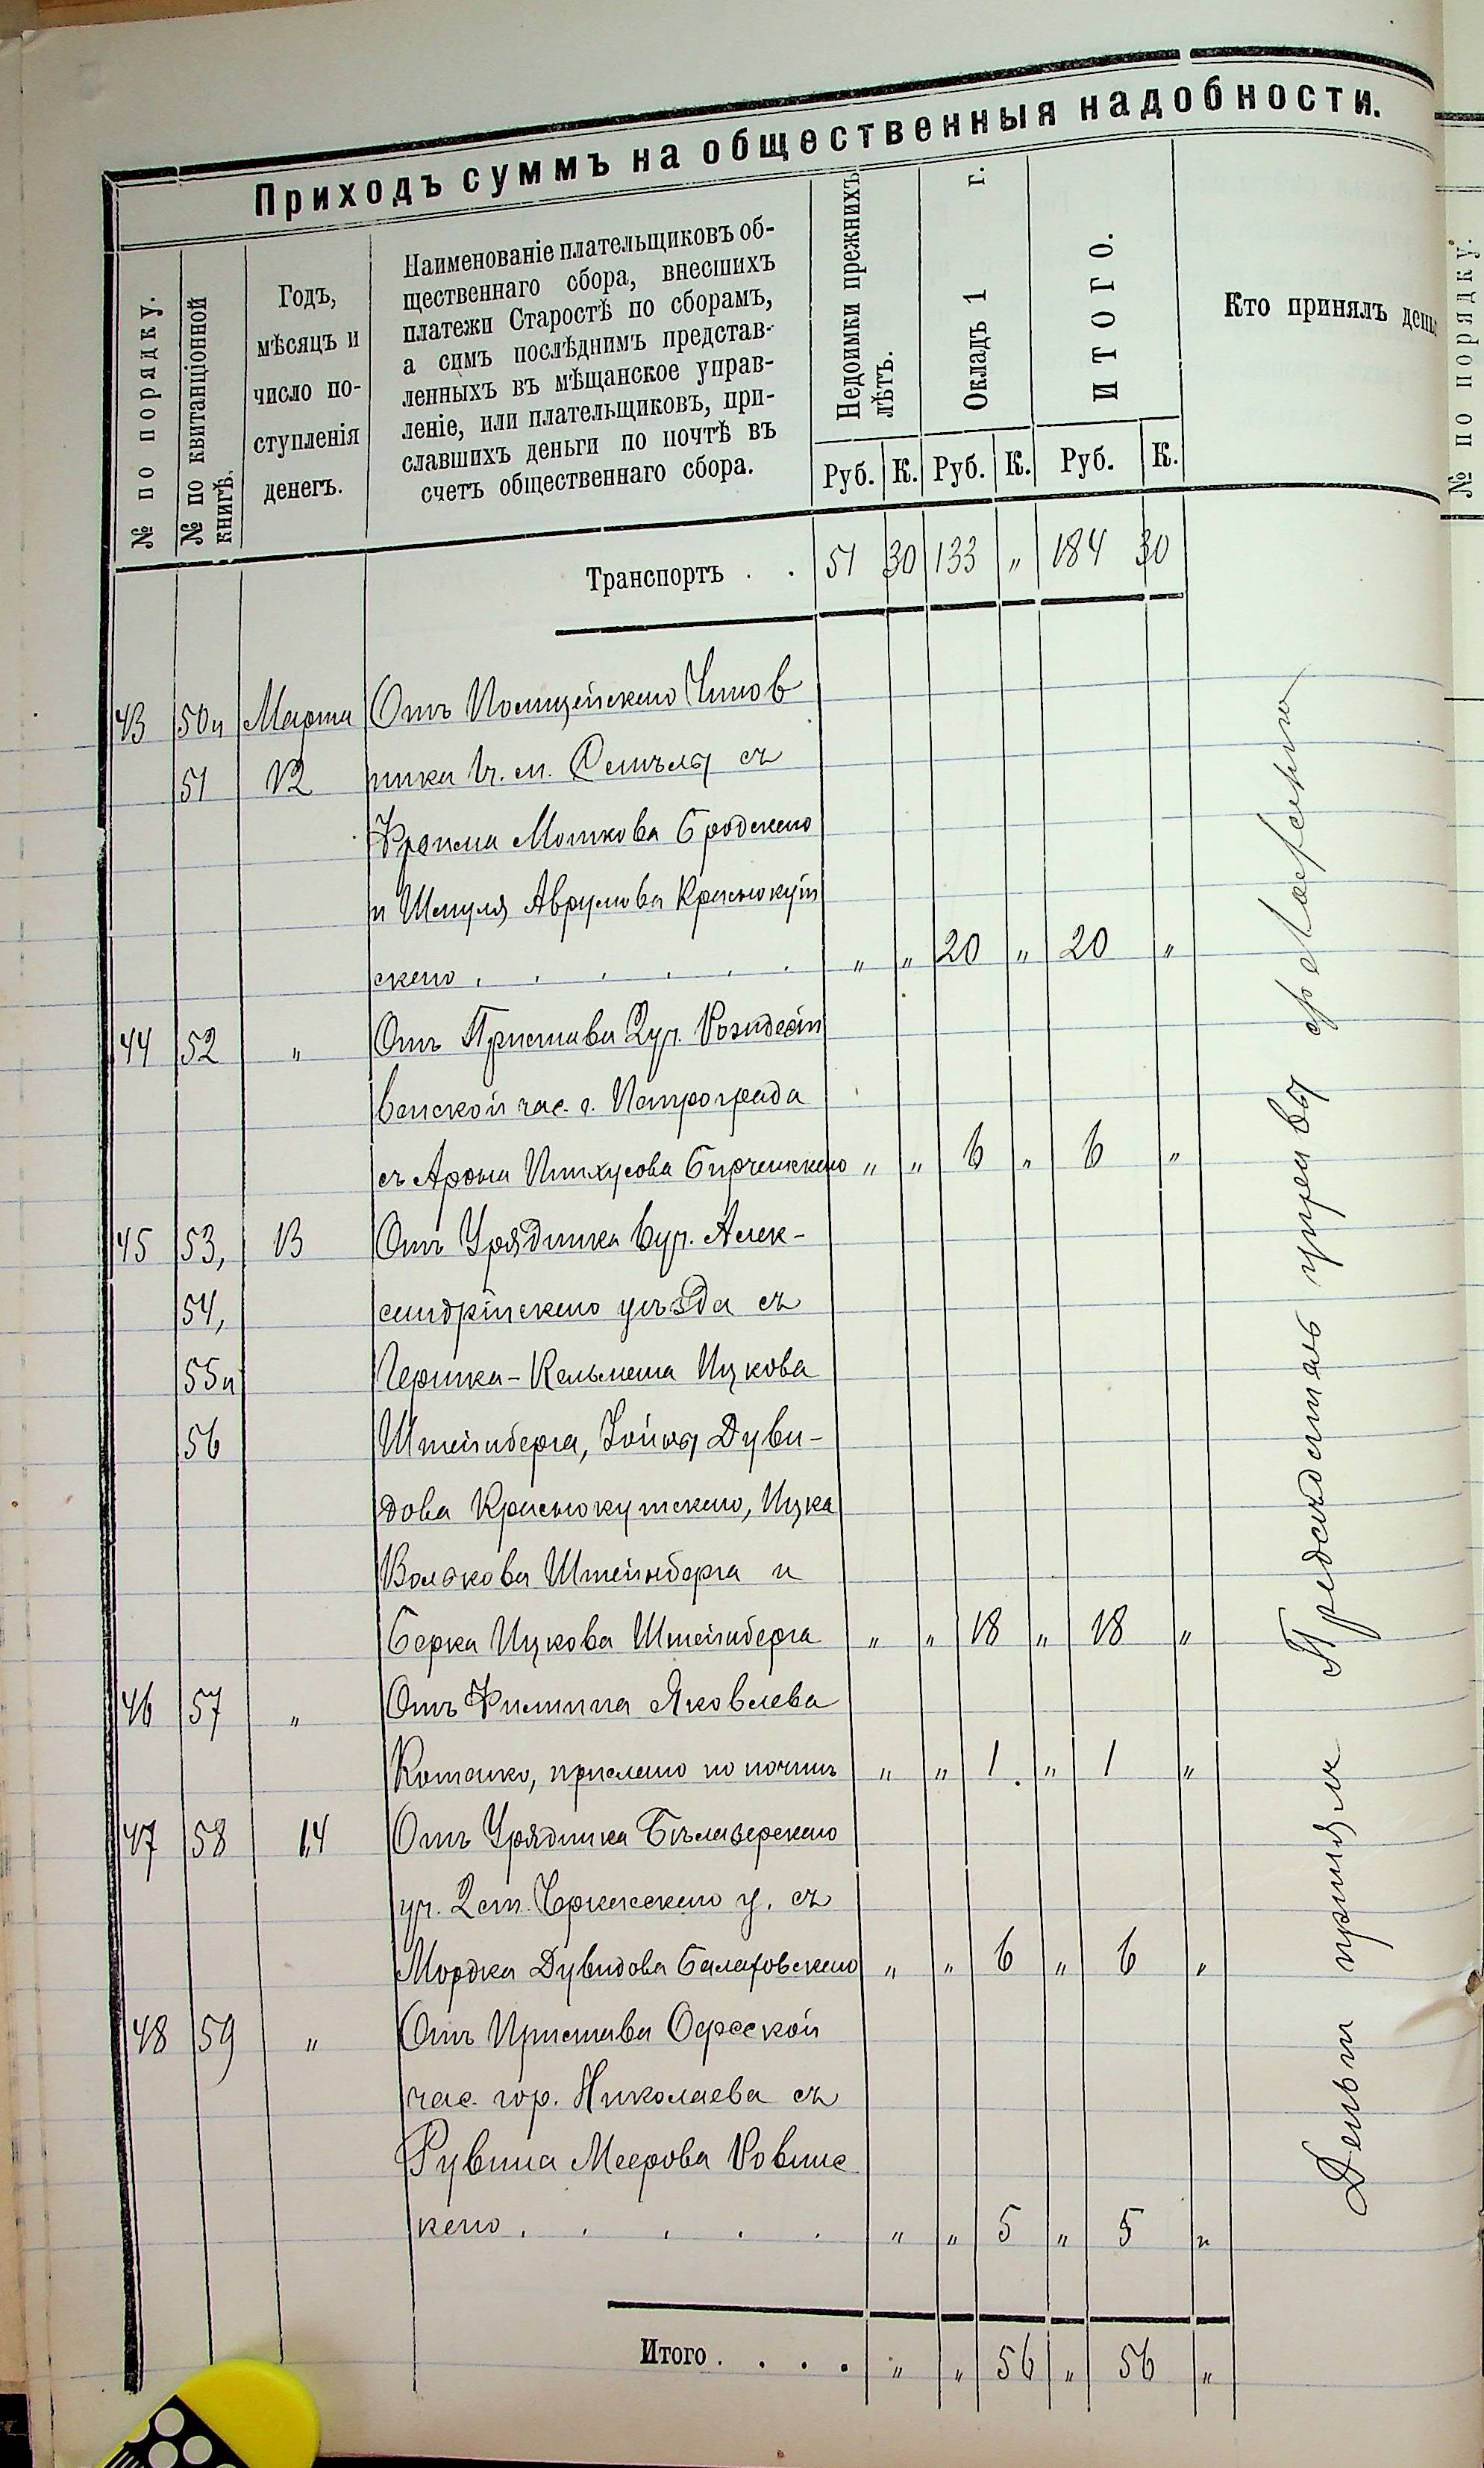 Приходъ суммъ на общественныя надобности.
№ по порядку.
№ по квитанціонной книгѣ.
Годъ,
мѣсяцъ и
число по-
ступленія
денегъ.
Наименованіе плательщиковъ об-
щественнаго сбора, внесшихъ
платежи Старостѣ по сборамъ,
а симъ послѣднимъ представ-
ленныхъ въ мѣщанское управ-
леніе, или плательщиковъ, при-
славшихъ деньги по почтѣ въ
счетъ общественнаго сбора.
Недоимки прежнихъ
лѣтъ.
Окладъ 1 г.
ИТОГО.
Кто принялъ
Руб. К. Руб. К. Руб. К.
Транспортъ . . 51 30 133 „ 184 30
43 50и Марта Отъ Полицейскаго Чинов
51 12 ника м. съ
Фроима Мошкова Бродскаго
и Шмуля Аврумова Краснокут
скаго . . . . . . „ „ 20 „ 20 „
44 52 „ Отъ Пристава 2 уч. Рождест
венской час. г. Петрограда
съ Арона Пинхусова „ „ 6 „ 6 „
45 53, 13 Отъ Урядника 6 уч. Алек-
54, сандрійскаго уѣзда съ
55и Гершка-Кельмана Ицкова
56 Штейнберга, Дуви-
дова Краснокутскаго, Ицка
Волькова Штейнберга и
Берка Ицкова Штейнберга „ „ 18 „ 18 „
46 57 „ Отъ Филиппа Яковлева
прислано по почтѣ „ „ 1 „ 1 „
47 58 14 Отъ Урядника Бѣлазерскаго
уч. 2 ст. Черкасскаго у. съ
Мордка Дувидова Балаховскаго „ „ 6 „ 6 „
48 59 „ Отъ Пристава Одесской
час. гор. Николаева съ
Рувина Меерова Ровинс
каго . . . . . „ „ 5 „ 5 „
Итого . . . . „ „ 56 „ 56 „
Деньги принялъ Предсѣдатель управы
№ по порядку.